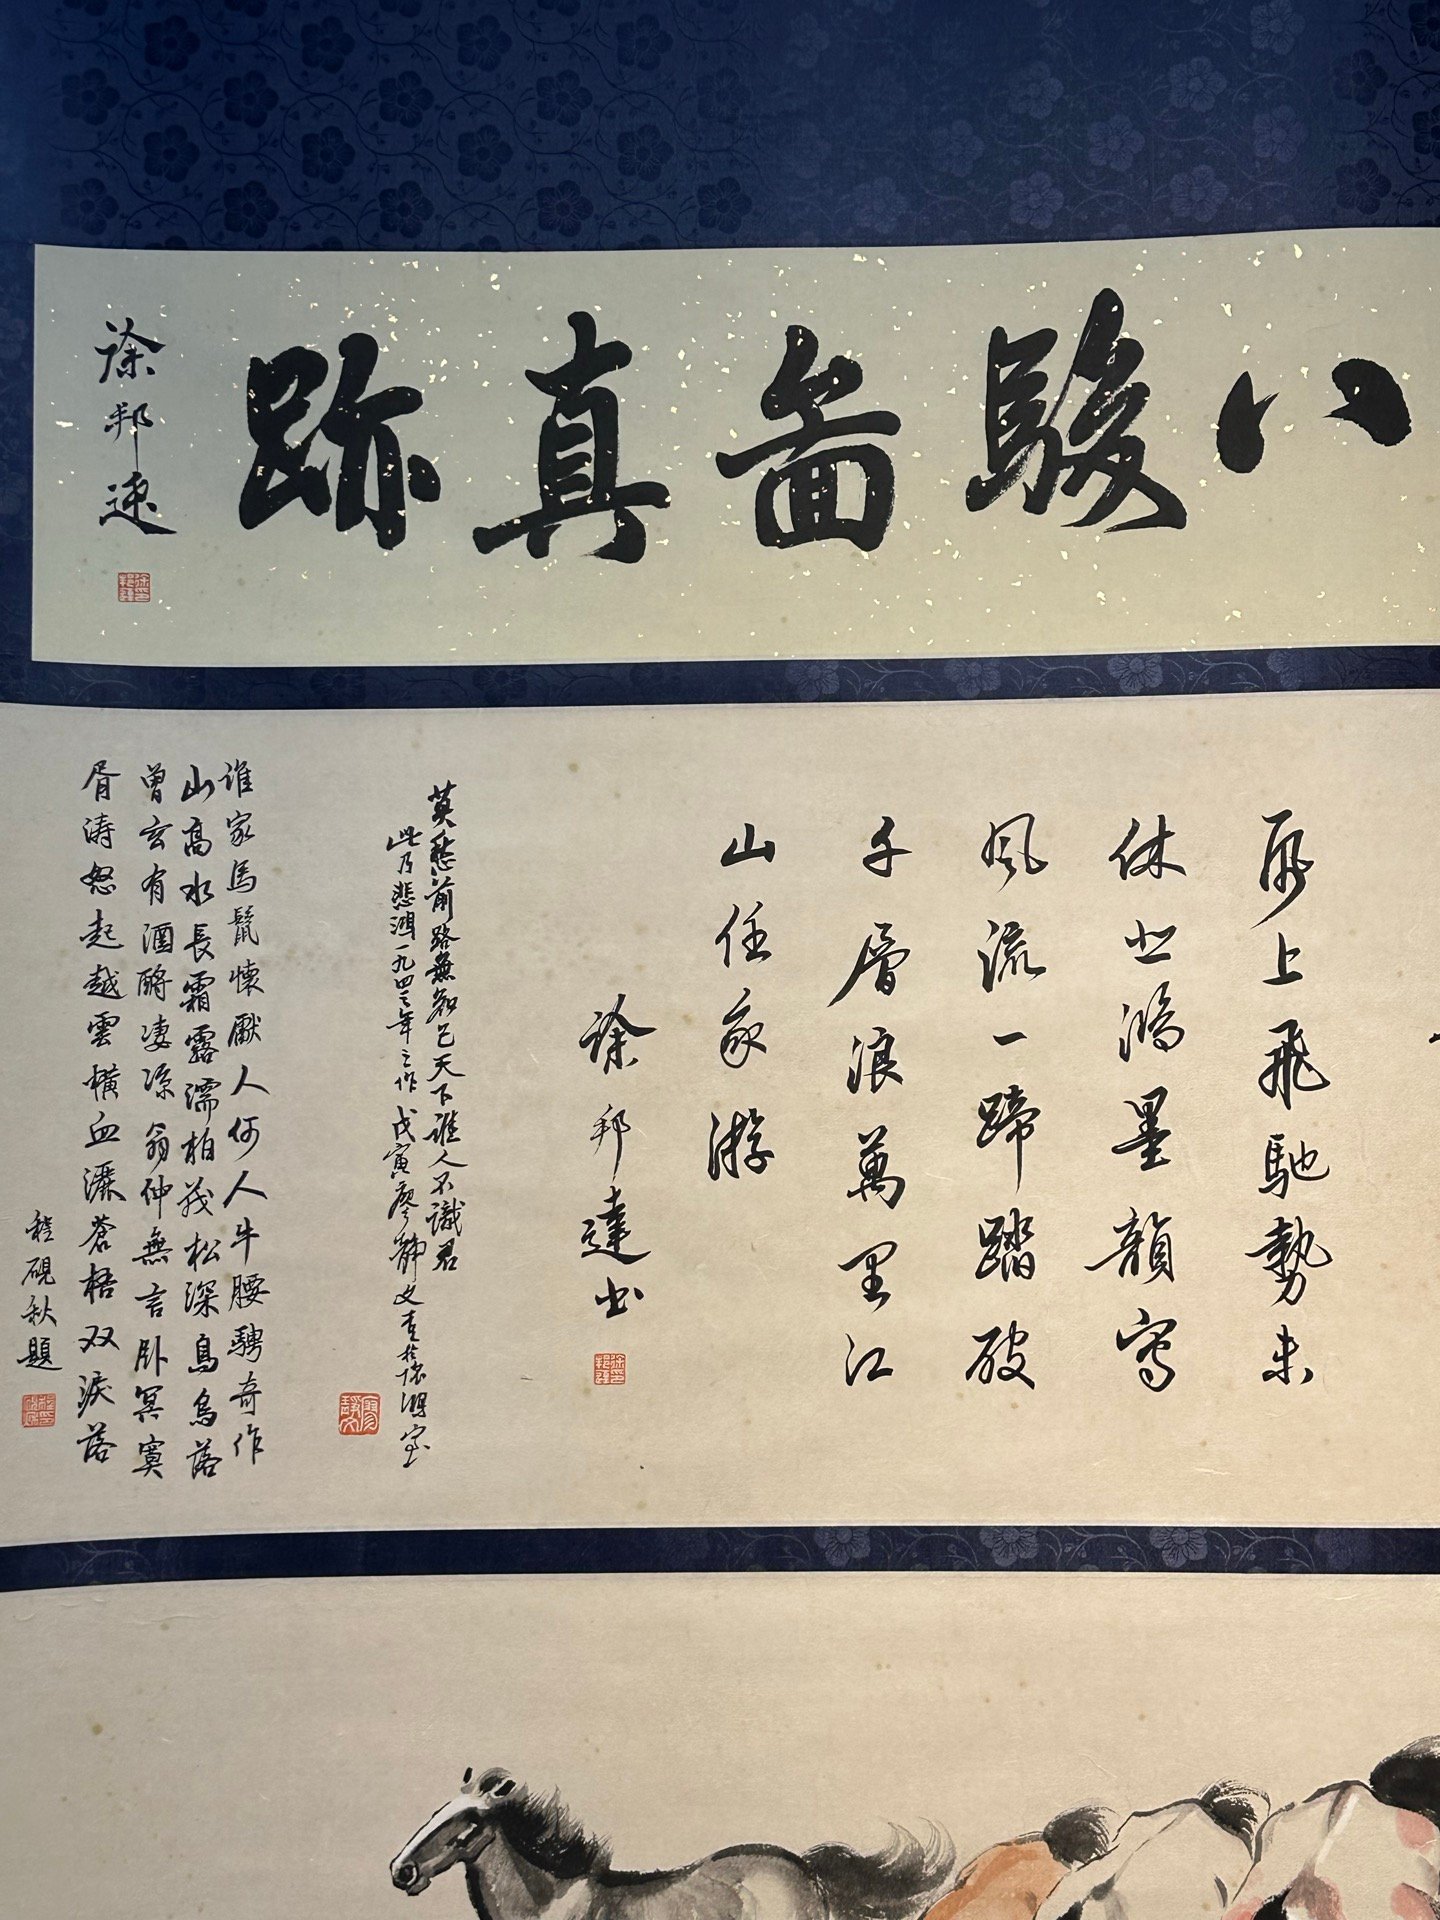 八駿圖真跡
徐邦達
紙上飛馳勢未
休悲鴻墨韻寫
風流一蹄踏破
千層浪萬里江
山任家游
徐邦達书
莫愁前路無知已天下誰人不識君
此乃悲鴻一九四三年之作戊寅廖静文書於悲鴻室
谁家馬鬣懷厭人何人牛腰騁奇作
山高水長霜露濡柏茂松深鳥烏落
曾玄有酒酹凄凉翁仲無言卧冥寞
胥涛怒起越雲横血灑蒼梧双淚落
程硯秋題